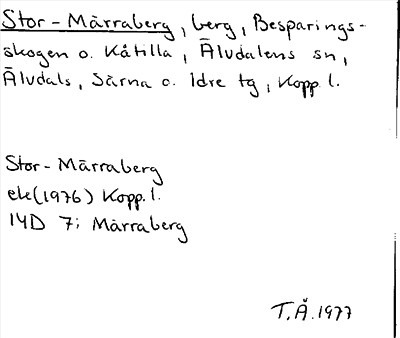 Stor-Mårraberg, berg, Besparings-
skogen o. Kåtilla, Älvdalens sn,
Älvdals, Särna o. Idre tg, Kopp. l.
Stor-Mårraberg
ek (1976) Kopp. l.
14D 7i Mårraberg
T.Å. 1977